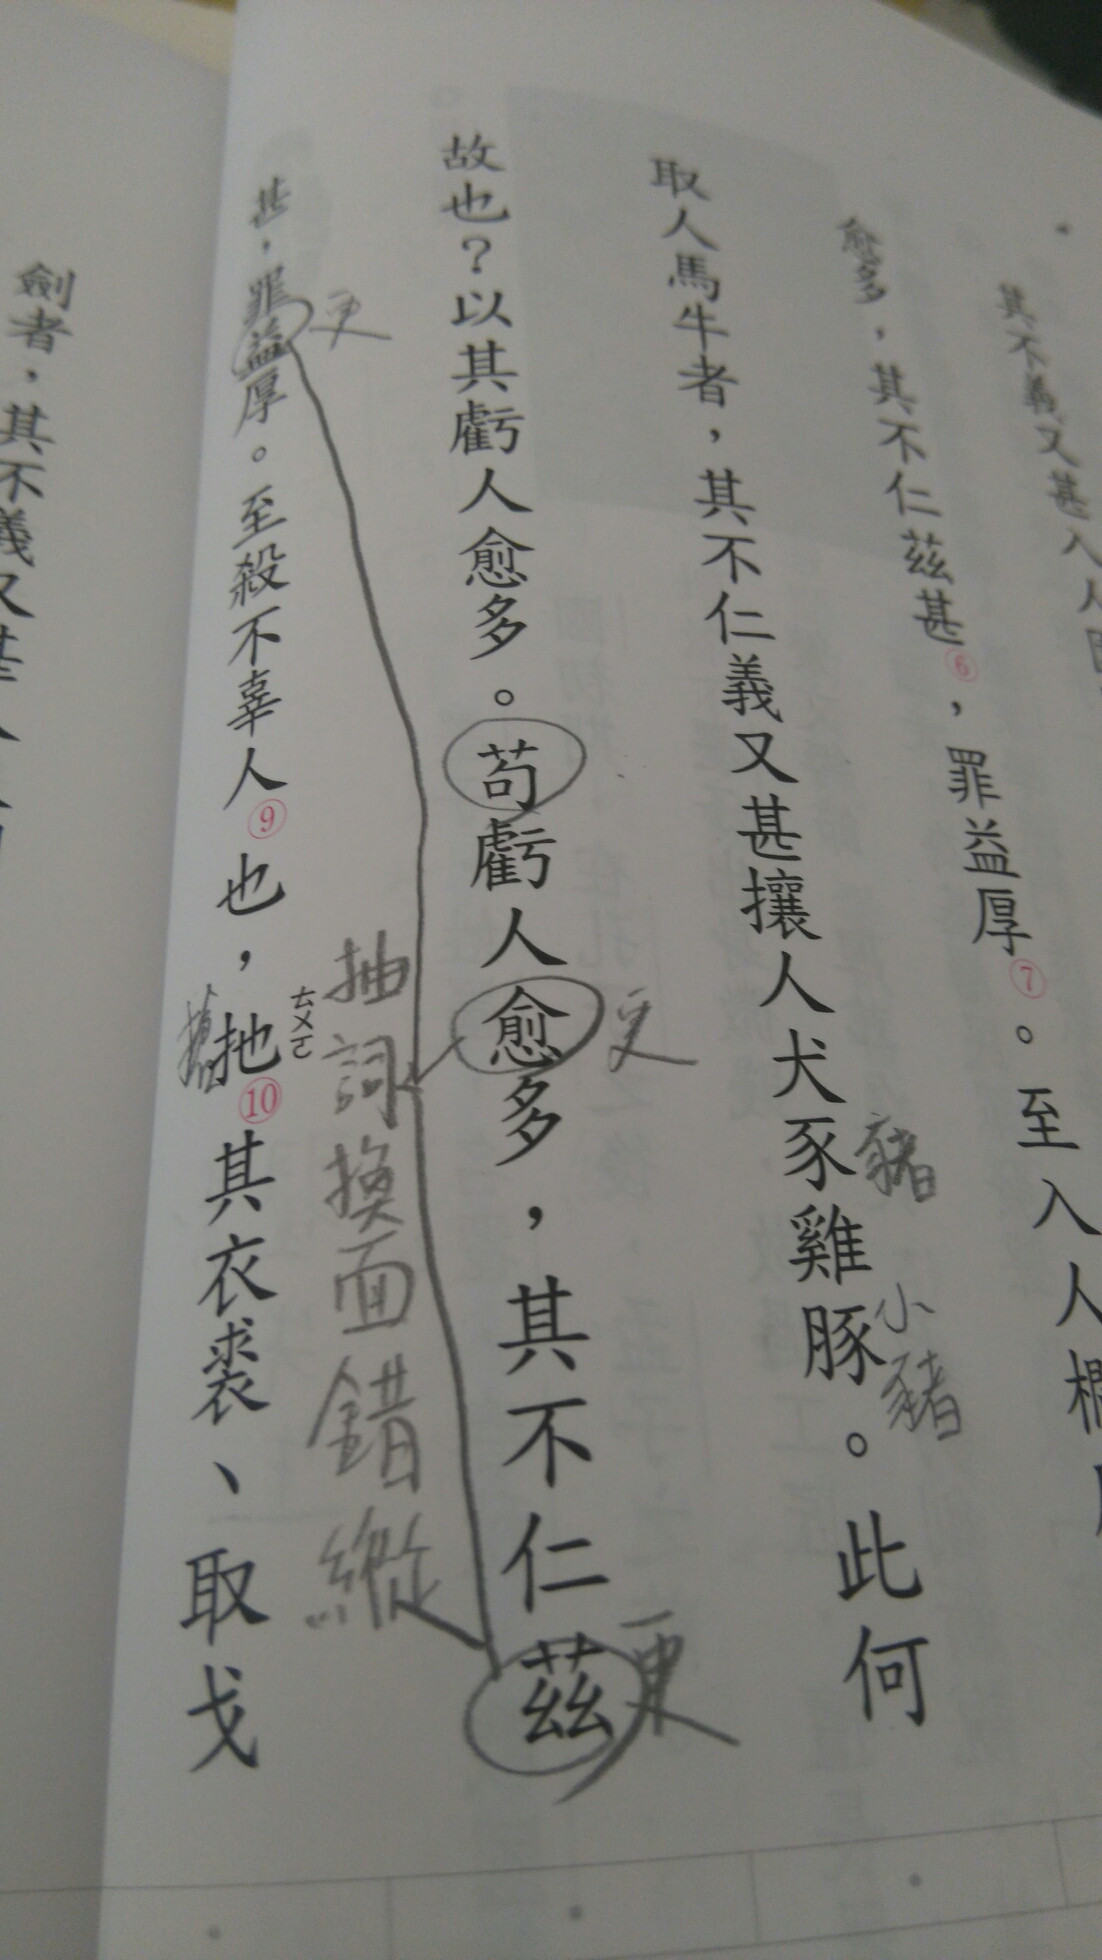 其不義又甚入人
愈多，其不仁茲甚⑥，罪益厚⑦。至入人欄
取人馬牛者，其不仁義又甚攘人犬豕雞豚。此何
豬
小豬
故也？以其虧人愈多。苟虧人愈多，其不仁茲
更
更
抽詞換面錯縱
甚，罪益厚。至殺不辜人⑨也，扡⑩其衣裘、取戈
更
ㄊㄨㄛ
劍者，其不義又甚入人